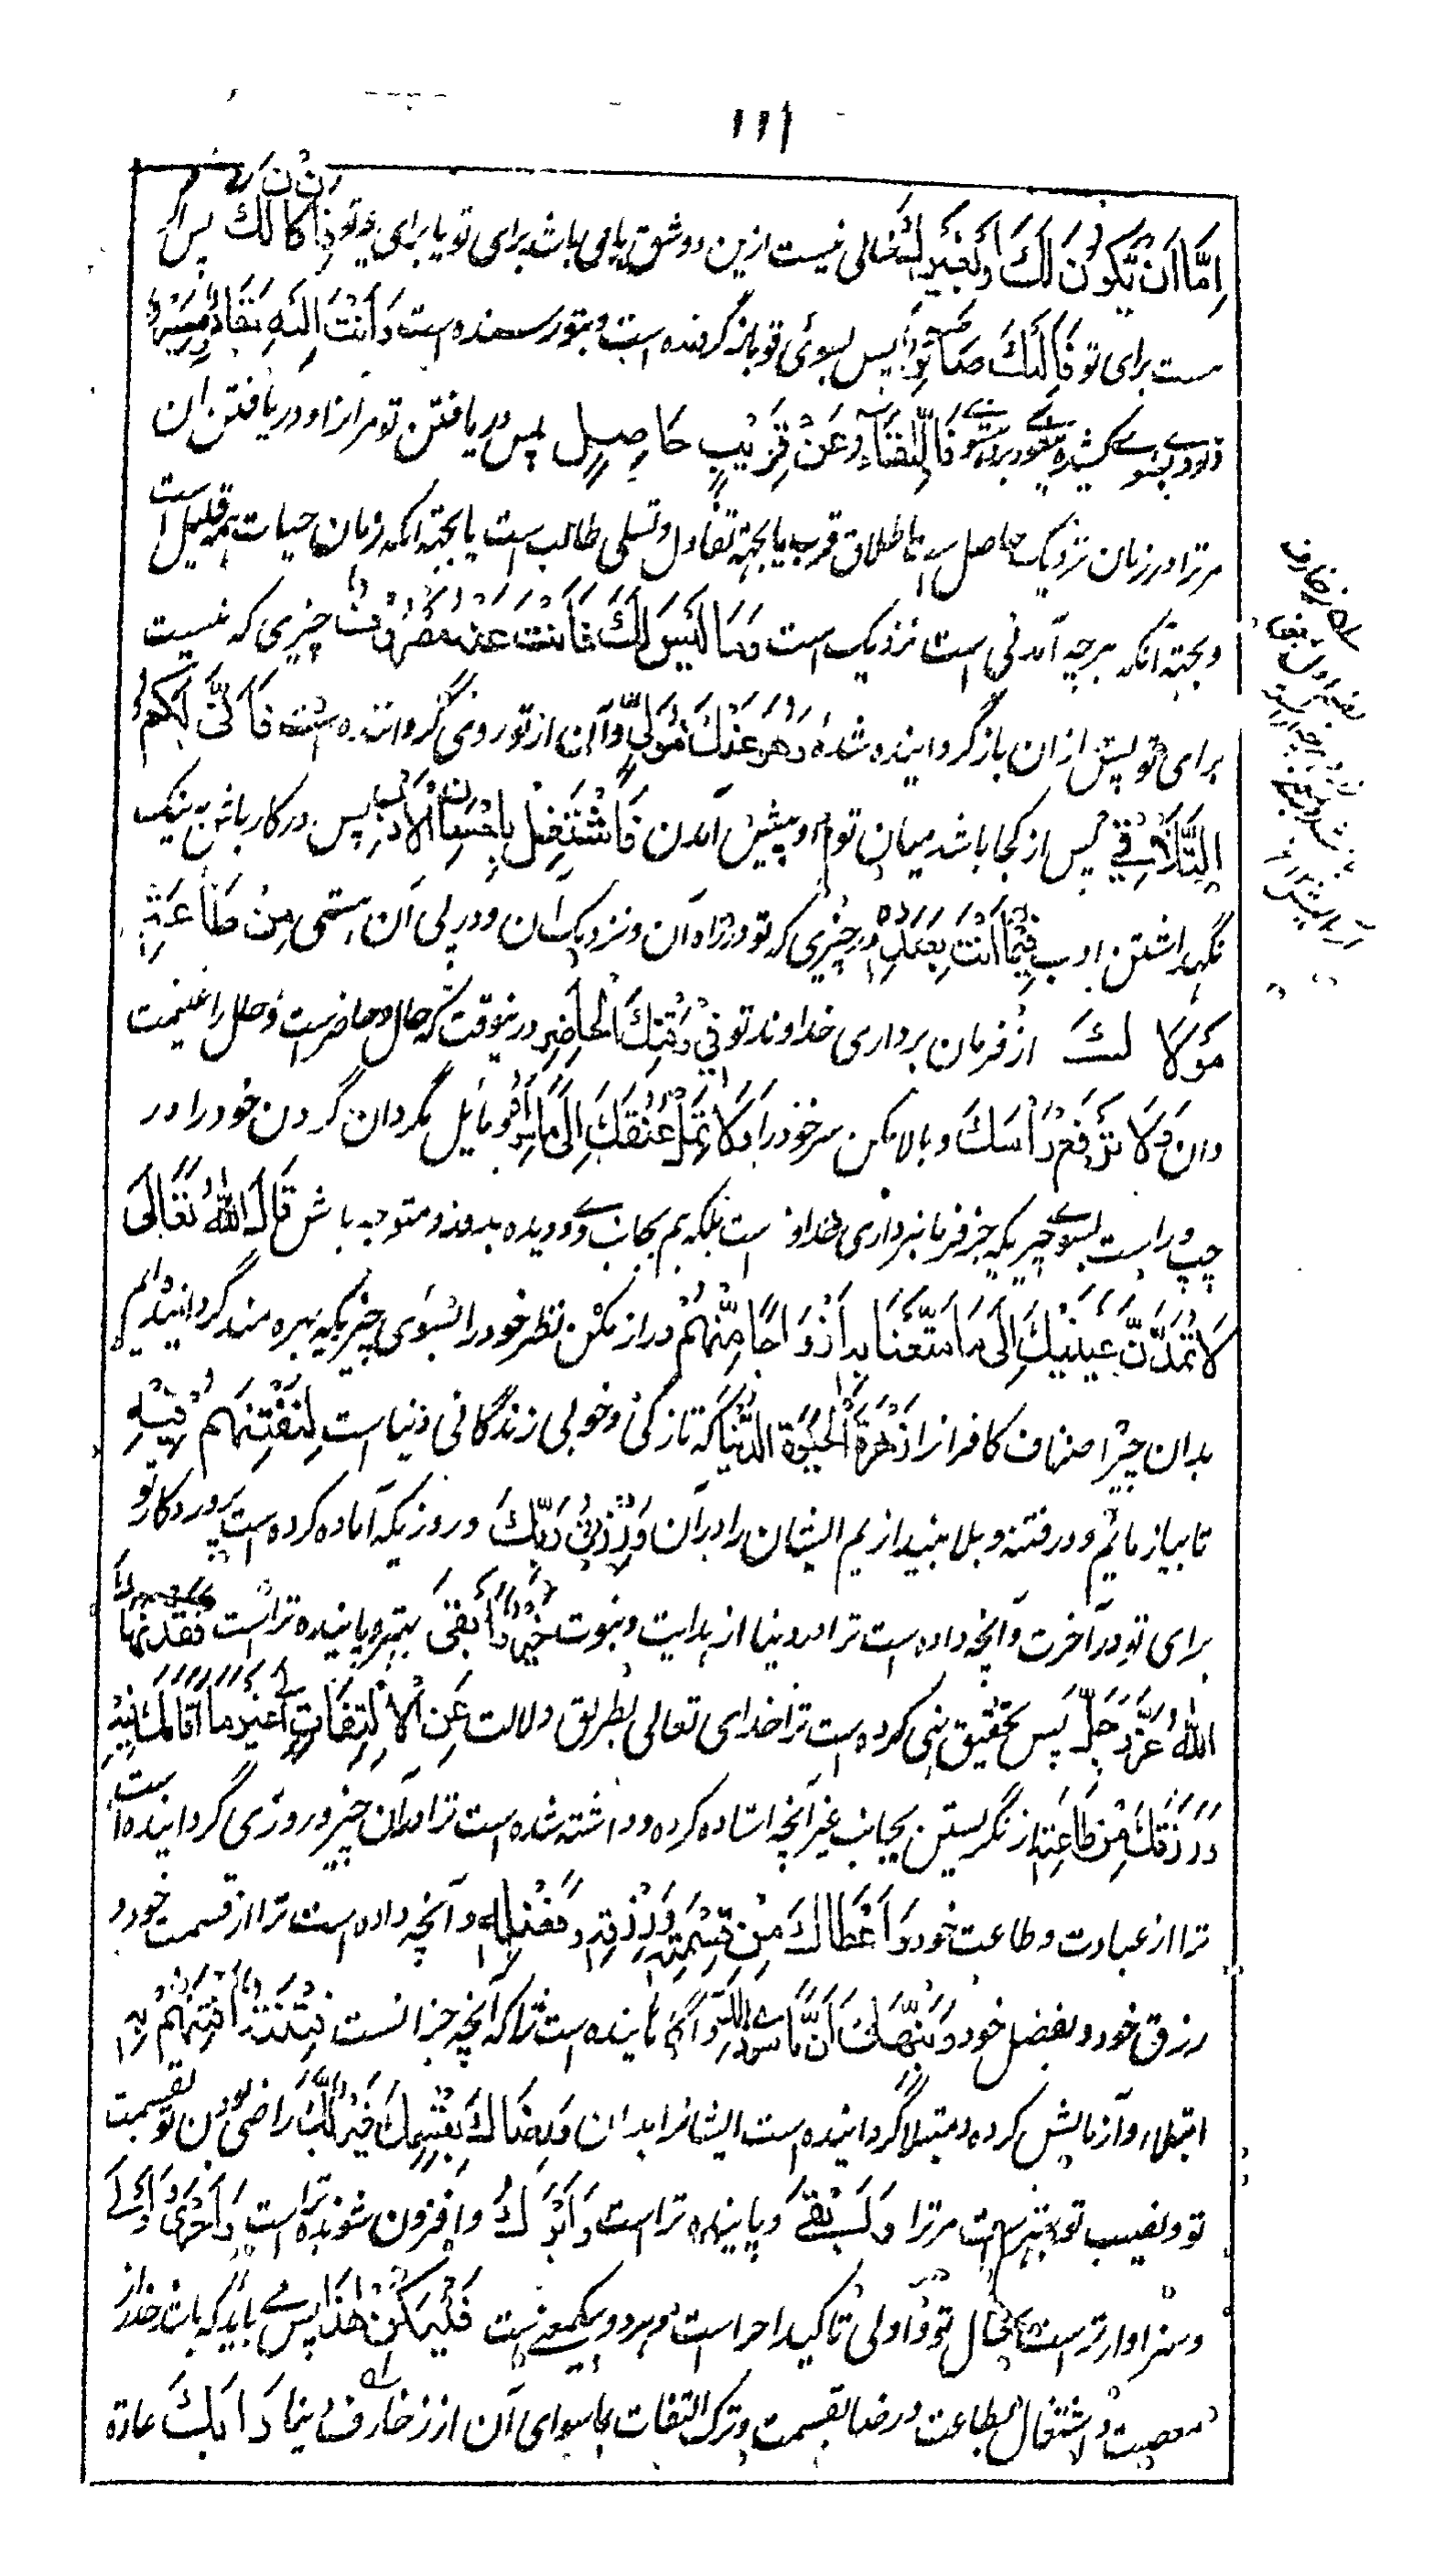 ۱۱۱
اِمَّا اَنْ یَّکُوْنَ لَكَ اَوْ لِغَیْرِكَ خالی نیست ازین دو شق یا می باشد برای تو یا برای غیر تو فَاِنْ کَانَ لَكَ پس اگر
ست برای تو فَاِلَیْكَ صَائِرٌ پس بسوئ تو باز گردنده است و بتو رسنده است وَاَنْتَ اِلَیْهِ تُقَادُ وَیُسَیَّرُ
کشیده میشوے فَاللِّقَاءُ عَنْ قَرِیْبٍ حَاصِلٌ پس دریافتن تو مر انرا و دریافتن ان
مر ترا در زمان نزدیک حاصل است اطلاق قرب یا بجهة تفاول و تسلی طالب است یا بجهة آنکه زمان حیات همه قلیل است
و بجهة آنکه هر چه آمدنی است نزدیک است وَمَا لَیْسَ لَكَ فَاَنْتَ عَنْهُ مَصْرُوْفٌ چیزی که نیست
برای تو پس تو از ان باز گردانیده شدهٔ وَهُوَ عَنْكَ مُوَلٍّ و آن از تو روی گرداننده است فَاَنّٰی لَکُمَا
التَّلَاقِیْ پس از کجا باشد میان تو و او پیش آمدن فَاشْتَغِلْ بِاِحْسَانِ الْاَدَبِ پس در کار باش به نیک
نگهداشتن ادب فِیْمَا اَنْتَ بِصَدَدِهٖ در چیزی که تو در راه آن و نزدیک آن و در پی آن هستی مِنْ طَاعَةِ
مَوْلَاكَ از فرمان برداری خداوند تو فِیْ وَقْتِكَ الْحَاضِرِ درینوقت که حال و حاضر است و حال را غنیمت
دان وَلَا تَرْفَعْ رَأْسَكَ و بالا مکن سر خود را وَلَا تُمِلْ عُنُقَكَ اِلٰی مَا سِوَاهُ و مائل مگردان گردن خود را در
چپ و راست بسوے چیزیکه جز فرمانبرداری خداوند است بلکه هم بجانب وے دیده بدوز و متوجه باش قَالَ اللّٰهُ تَعَالٰی
لَا تَمُدَّنَّ عَیْنَیْكَ اِلٰی مَا مَتَّعْنَا بِهٖ اَزْوَاجًا مِّنْهُمْ دراز مکن نظر خود را بسوی چیزیکه بهره مند گردانیدیم
بدان چیز اصناف کافرانرا زَهْرَةَ الْحَیٰوةِ الدُّنْیَا که تازگی و خوبی زندگانی دنیا است لِنَفْتِنَهُمْ فِیْهِ
تا بیازمائیم و در فتنه و بلا بیندازیم ایشان را در آن وَرِزْقُ رَبِّكَ و روزیکه آماده کرده است پروردگار تو
برای تو در آخرت و آنچه داده است ترا در دنیا از هدایت و نبوت خَیْرٌ وَّاَبْقٰی بهتر و پاینده تراست فَقَدْ نَهَاكَ
اللّٰهُ عَزَّ وَجَلَّ پس بتحقیق نهی کرده است ترا خدای تعالی بطریق دلالت عَنِ الْاِلْتِفَاتِ اِلٰی غَیْرِ مَا اَقَامَكَ فِیْهِ
وَرَزَقَكَ مِنْ طَاعَتِهٖ از نگریستن بجانب غیر آنچه استاده کرده و داشته شده است ترا در آن چیز و روزی گردانیده است
ترا از عبادت و طاعت خود وَاَعْطَاكَ مِنْ قِسْمَتِهٖ وَرِزْقِهٖ وَفَضْلِهٖ و آنچه داده است ترا از قسمت خود و
رزق خود و بفضل خود وَنَبَّهَكَ اَنَّ مَا سِوٰی ذٰلِكَ و آگاهاننده است ترا که آنچه جز انست فِتْنَةٌ اِفْتَتَنَهُمْ بِهٖ
ابتلاء و آزمایش کرده و مبتلا گردانیده است ایشانرا بدان وَرِضَاكَ بِقِسْمِكَ خَیْرٌ لَّكَ راضی بودن تو بقسمت
تو و نصیب تو بهتر است مر ترا وَاَبْقٰی و پاینده تراست وَاَبْرَكُ و افزون شونده تراست وَاَحْرٰی وَاَوْلٰی
و سزاوار تر است بحال تو و اولی تاکید احرا است و هر دو بیک معنے است فَلْیَکُنْ هٰذَا پس مے باید که باشد حذر از
معصیت و اشتغال بطاعت و رضا بقسمت و ترک التفات بماسوای آن از زخارف دنیا دَابَكَ عادة